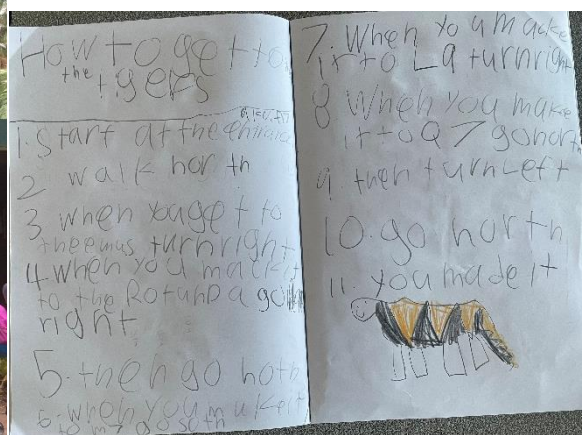 How to get to
the
tigers
1. Start at the
2 walk north
3 when you get to
theemus turnright
4. when you mackit
to the Rotunda go
right
5. then go noth
6. when you makeit
to m7 go soth
7. When you macke
it to L9 turnright
8 When you make
it to Q7 gonorth
9. then turn Left
10. go north
11. you made it